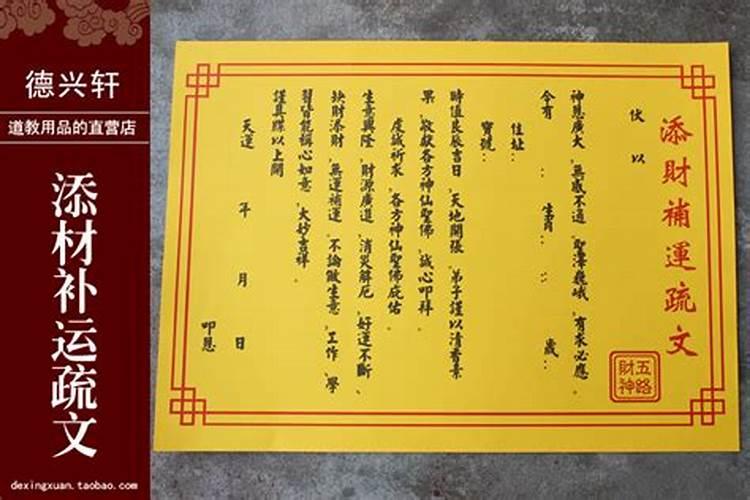 德兴轩
道教用品的直营店
添材补运疏文
dexingxuan.taobao.com
添財補運疏文
五路
財神
伏以
神恩廣大、無感不通、聖澤巍峨、有求必應。
今有　：　生肖：　：　歲：
住址：
寶號：
時值良辰吉日、天地開張、弟子謹以清香素
果、敬献各方神仙聖佛、誠心叩拜。
虔誠祈求、各方神仙聖佛庇佑。
生意興隆、財源廣進、消災解厄、好運不斷、
缺財添財、無運補運、不論做生意、工作、學
習皆能稱心如意、大妙吉祥。
謹具牒以上聞
天運　年　月　日
叩恩